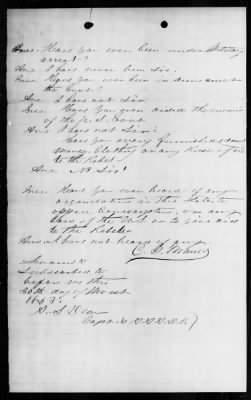 Ques. Have you ever been under Military
arrest?
Ans. I have never been Sir.
Ques. Have you ever been in arms since
the
Ans. I have not Sir
Ques. Have you given aided the enemies
of the U.S. Govt
Ans. I have not Sir.
Have you ever furnished arms
money Clothing or any kind of aid
to the Rebels
Ans. No Sir!
Ques. Have you ever heard of any
organization in this State to
oppose Conscription, or any
laws of the or to give aid
to the Rebels
Ans. I have not heard of any.
C. F.
Sworn &
Subscribed to
before me this
20th day of March
1863.
S. S. Dean
Capt.